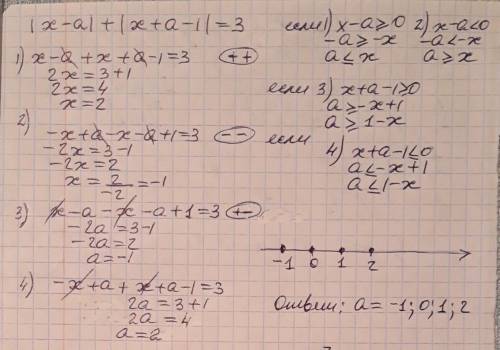 |x-a|+|x+a-1|=3
1) x-a+x+a-1=3 (++)
2x=3+1
2x=4
x=2
2)
-x+a-x-a+1=3 (--)
-2x=3-1
-2x=2
x=2/-2=-1
3) x-a-x-a+1=3 (+-)
-2a=3-1
-2a=2
a=-1
4) -x+a+x+a-1=3
2a=3+1
2a=4
a=2
если 1) x-a≥0 2) x-a<0
-a≥-x -a<-x
a≤x a≥x
если 3) x+a-1≥0
a≥-x+1
a≥1-x
если
4) x+a-1≤0
a≤-x+1
a≤1-x
-1 0 1 2
Ответ: a=-1; 0; 1; 2